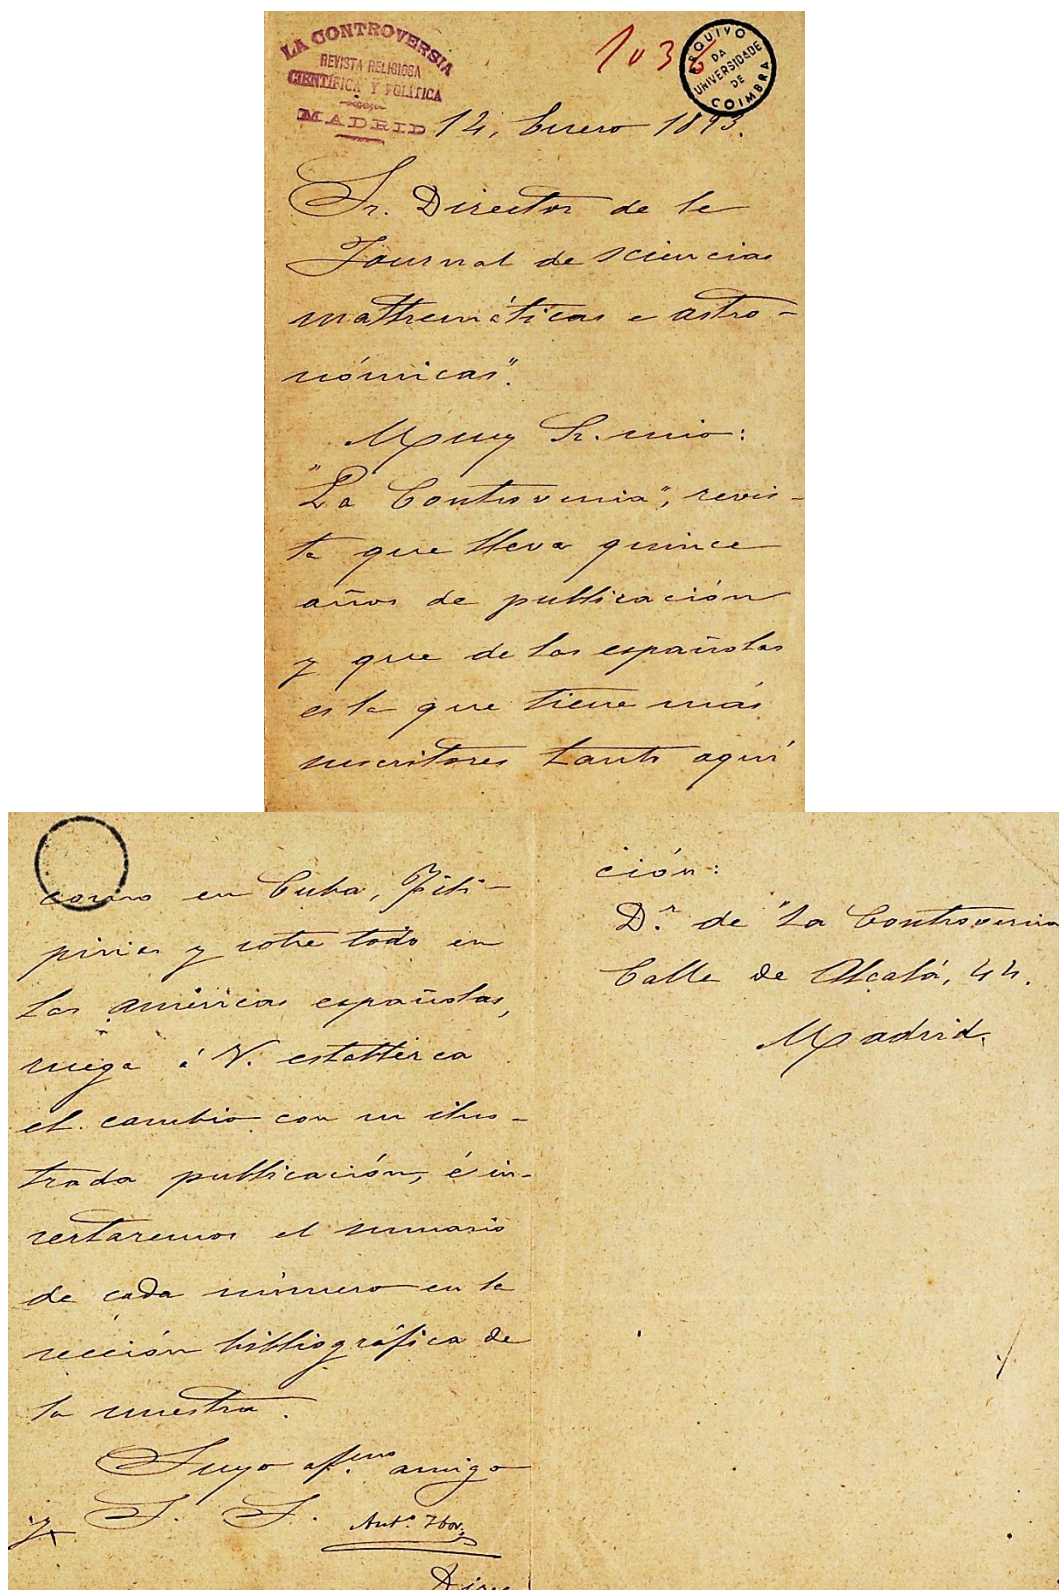 LA CONTROVERSIA
REVISTA RELIGIOSA
CIENTÍFICA Y POLÍTICA
MADRID
ARQUIVO
DA
UNIVERSIDADE
DE
COIMBRA
103
12, Enero 1893.
Sr. Director de le
Journal de sciencias
mathemáticas e astro-
nómicas".
Muy Sr. mio:
"La Controversia", revis-
ta que lleva quince
años de publicación
y que de las españolas
es la que tiene más
suscritores tanto aquí
como en Cuba, Fili-
pinas y sobre todo en
las américas españolas,
ruega á V. establezca
el cambio con su ilus-
trada publicación, é in-
sertaremos el sumario
de cada número en la
sección bibliográfica de
la nuestra.
Suyo affmo amigo
S. S.
Ant.º
Direc
ción:
D.r de "La Controversia
Calle de Alcalá, 44.
Madrid.